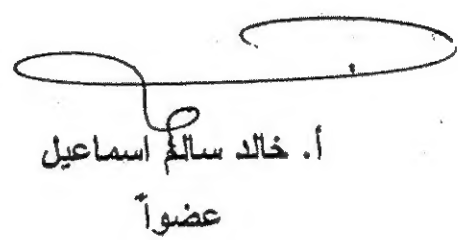 أ. خالد سالم اسماعيل
عضواً